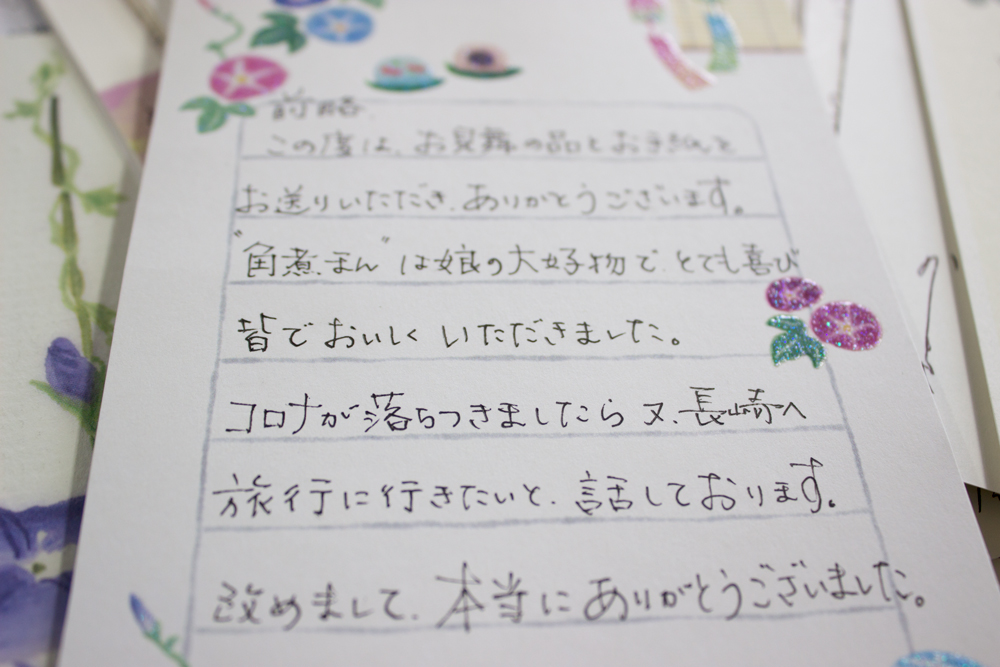 前略、
この度は、お見舞の品とお手紙を
お送りいただき、ありがとうございます。
“角煮まん”は娘の大好物で、とても喜び
皆でおいしくいただきました。
コロナが落ちつきましたら又、長崎へ
旅行に行きたいと、話しております。
改めまして、本当にありがとうございました。